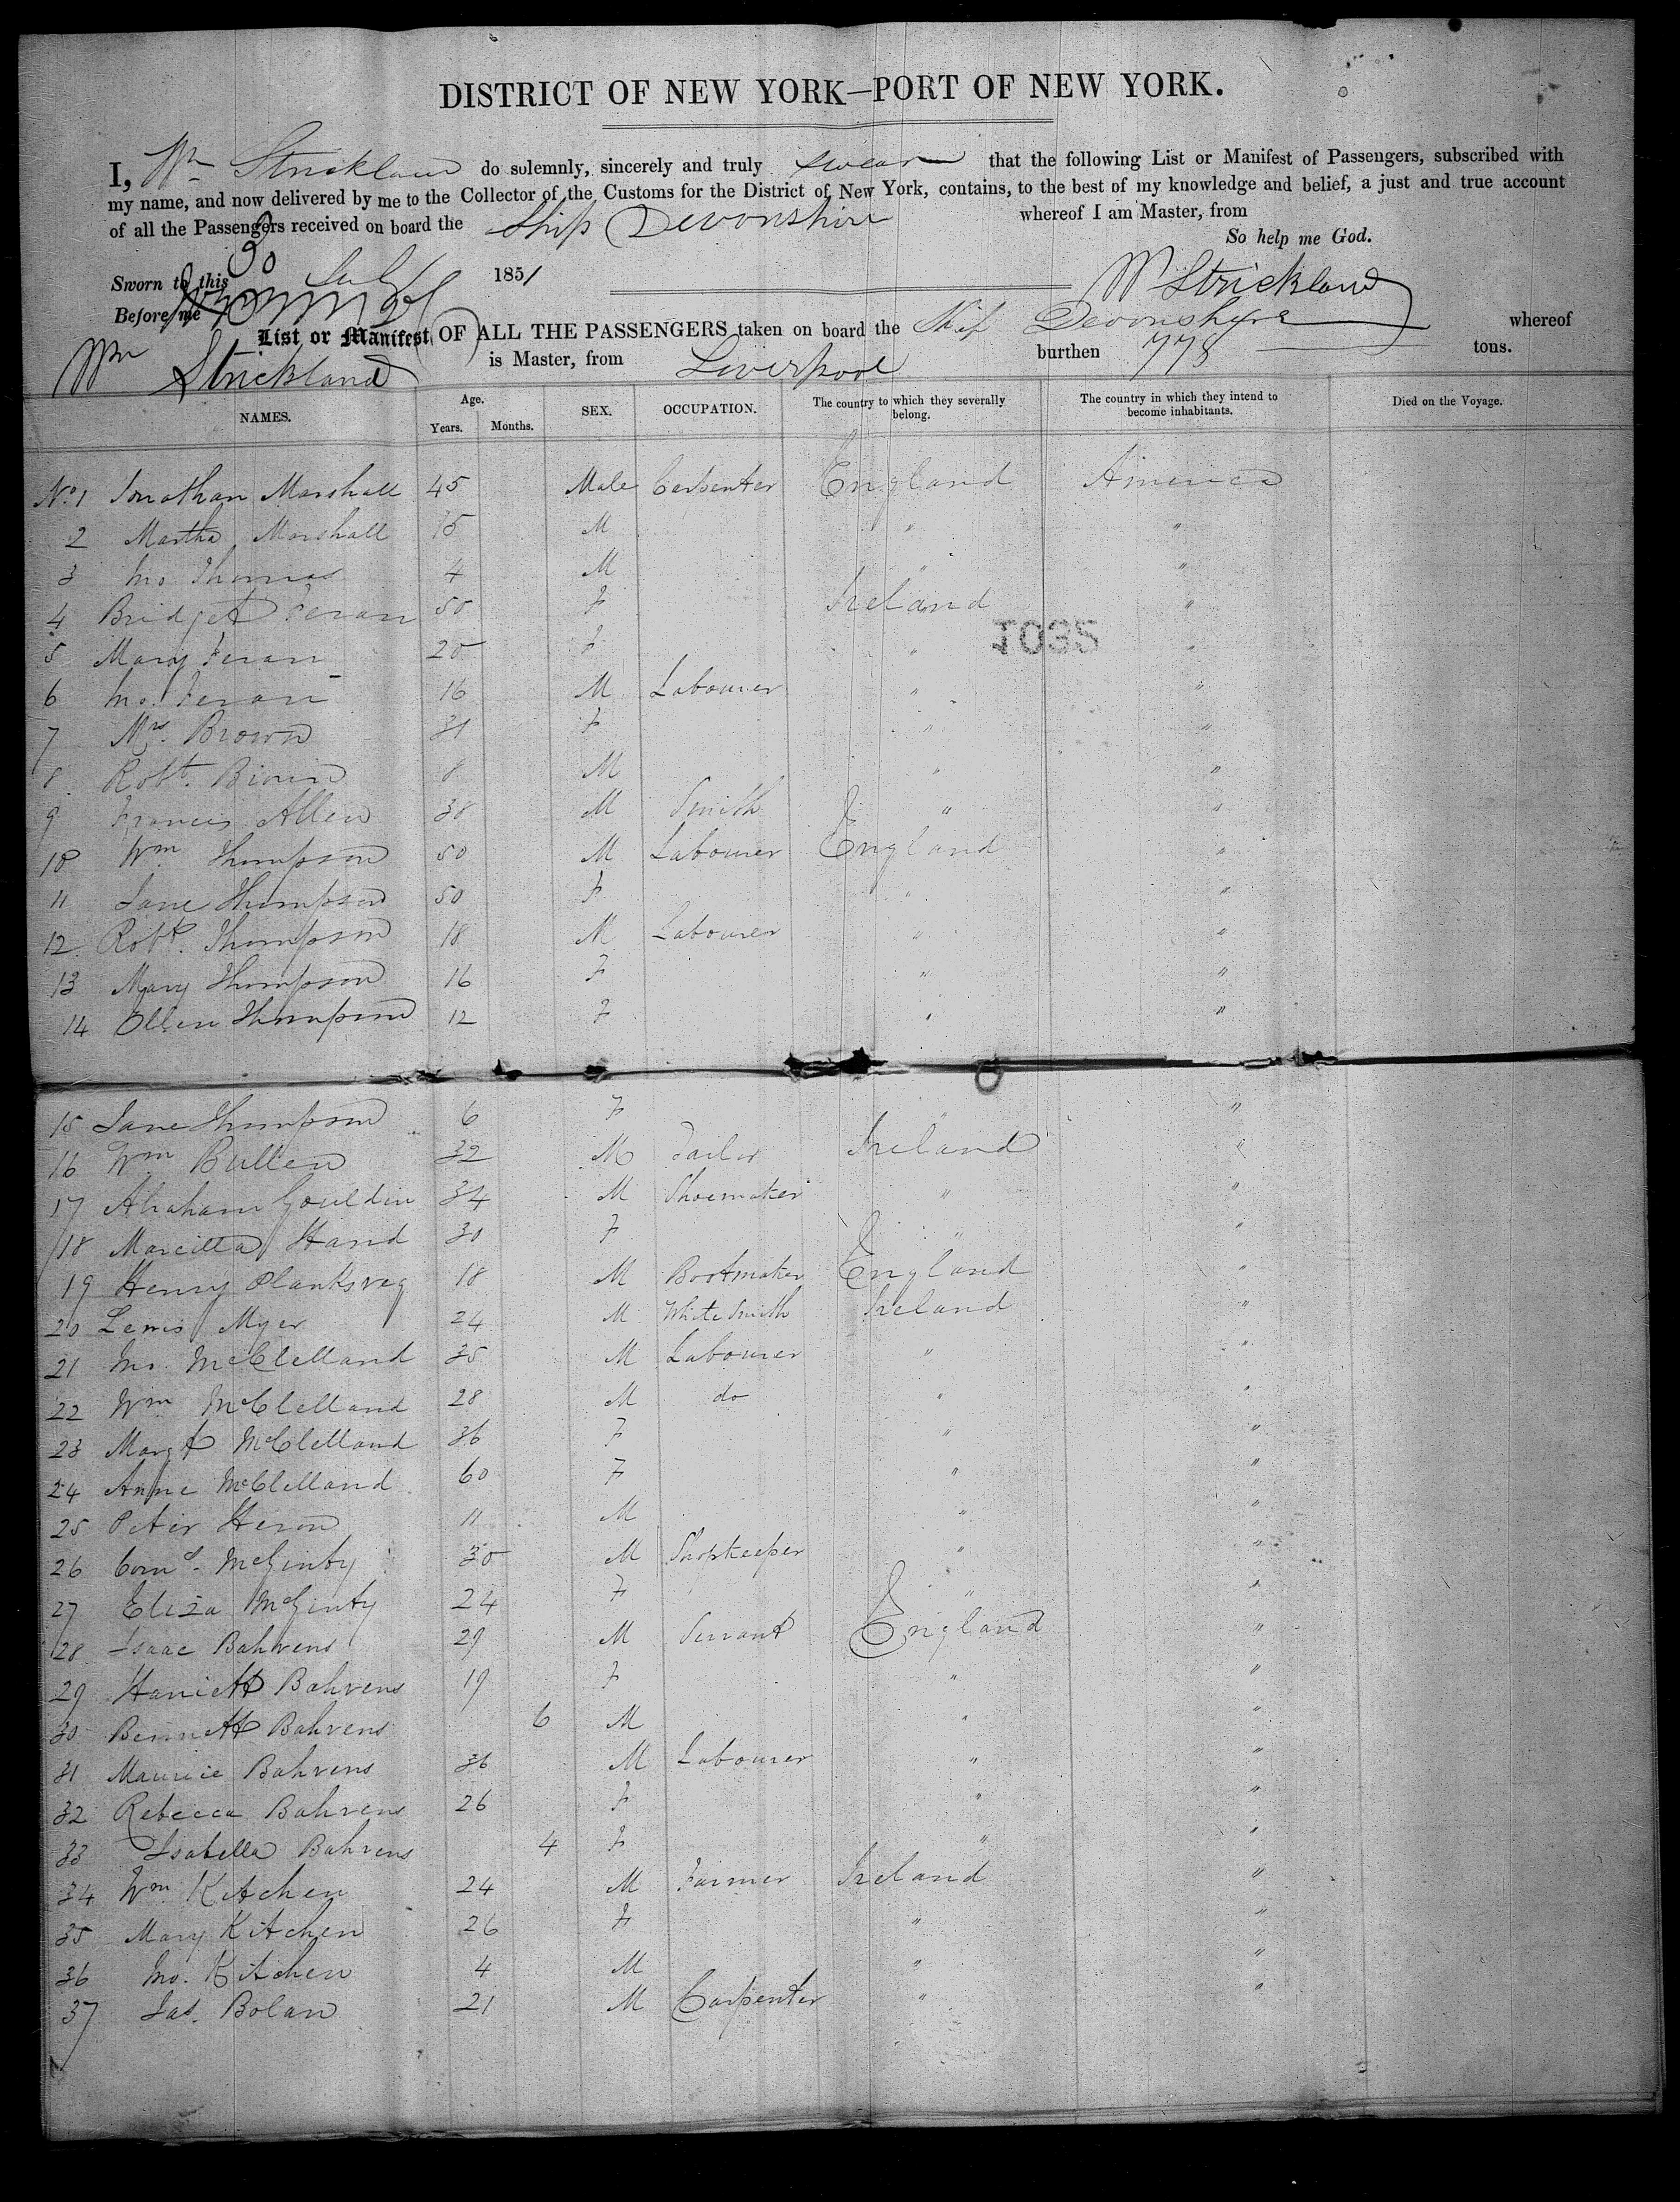 DISTRICT OF NEW YORK—PORT OF NEW YORK.
I, Wm Strickland do solemnly, sincerely and truly swear that the following List or Manifest of Passengers, subscribed with
my name, and now delivered by me to the Collector of the Customs for the District of New York, contains, to the best of my knowledge and belief, a just and true account
of all the Passengers received on board the Ship Devonshire whereof I am Master, from
So help me God.
Sworn to this 30 July 1851
W Strickland
Before me
List or Manifest OF ALL THE PASSENGERS taken on board the Ship Devonshire whereof
Wm Strickland is Master, from Liverpool burthen 778 tons.
NAMES. Age. Years. Months. SEX. OCCUPATION. The country to which they severally belong. The country in which they intend to become inhabitants. Died on the Voyage.
No. 1 Jonathan Marshall 45 Male Carpenter England America
2 Martha Marshall 15 M " "
3 Jno Thomas 4 M " "
4 Bridget Feran 50 F Ireland "
1035
5 Mary Feran 20 F " "
6 Jno. Feran 16 M Labourer " "
7 Mrs. Brown 31 F " "
8 Robt. 8 M " "
9 Francis Allen 38 M Smith " "
10 Wm Thompson 50 M Labourer England "
11 Jane Thompson 50 F " "
12 Robt. Thompson 18 M Labourer " "
13 Mary Thompson 16 F " "
14 Ellen Thompson 12 F " "
15 Jane Thompson 6 F " "
16 Wm Bullen 32 M Tailor Ireland "
17 Abraham Gouldin 34 M Shoemaker " "
18 Marcitta Hand 30 F " "
19 Henry 18 M Bootmaker England "
20 Lewis Myer 24 M White Smith Ireland "
21 Jno. McClelland 35 M Labourer " "
22 Wm McClelland 28 M do " "
23 Margt McClelland 36 F " "
24 Anne McClelland 60 F " "
25 Peter Heron 11 M " "
26 Corns. McGinty 30 M Shopkeeper " "
27 Eliza McGinty 24 F " "
28 Isaac Bahrens 29 M Servant England "
29 Harriett Bahrens 19 F " "
30 Bennett Bahrens 6 M " "
31 Maurice Bahrens 36 M Labourer " "
32 Rebecca Bahrens 26 F " "
33 Isabella Bahrens 4 F " "
34 Wm. Kitchen 24 M Farmer Ireland "
35 Mary Kitchen 26 F " "
36 Jno. Kitchen 4 M " "
37 Jas. Bolan 21 M Carpenter " "